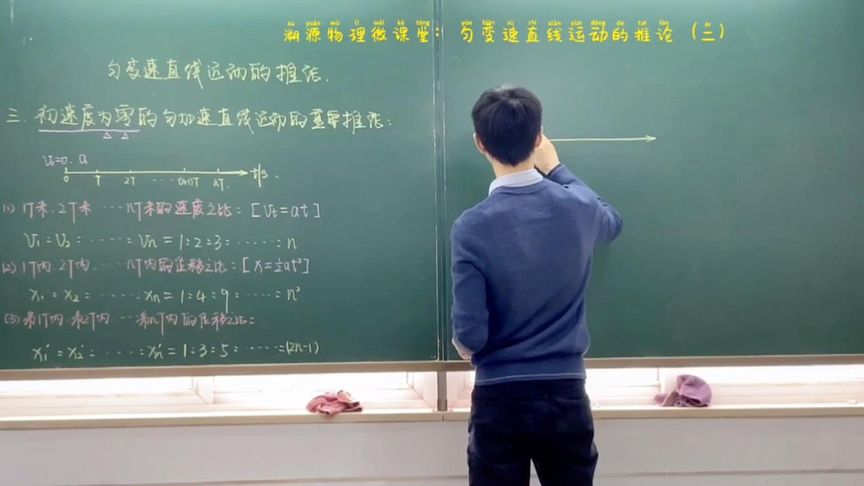 sù yuán wù lǐ wēi kè táng yún biàn sù zhí xiàn yùn dòng de tuī lùn
溯源物理微课堂：匀变速直线运动的推论（三）
匀变速直线运动的推论.
三. 初速度为零的匀加速直线运动的重要推论:
V₀=0. a
0 T 2T ··· (n-1)T nT t/s
(1) 1T末.2T末 ······ nT末的速度之比: [Vt=at]
V₁:V₂: ······ Vn=1:2:3: ······ n
(2) 1T内.2T内. ······ nT内的位移之比: [x=½at²]
x₁:x₂: ······ xn=1:4:9: ······ n²
(3) 第1T内.第2T内 ··· 第nT内的位移之比:
x₁′:x₂′: ······ xn′=1:3:5: ······:(2n-1)